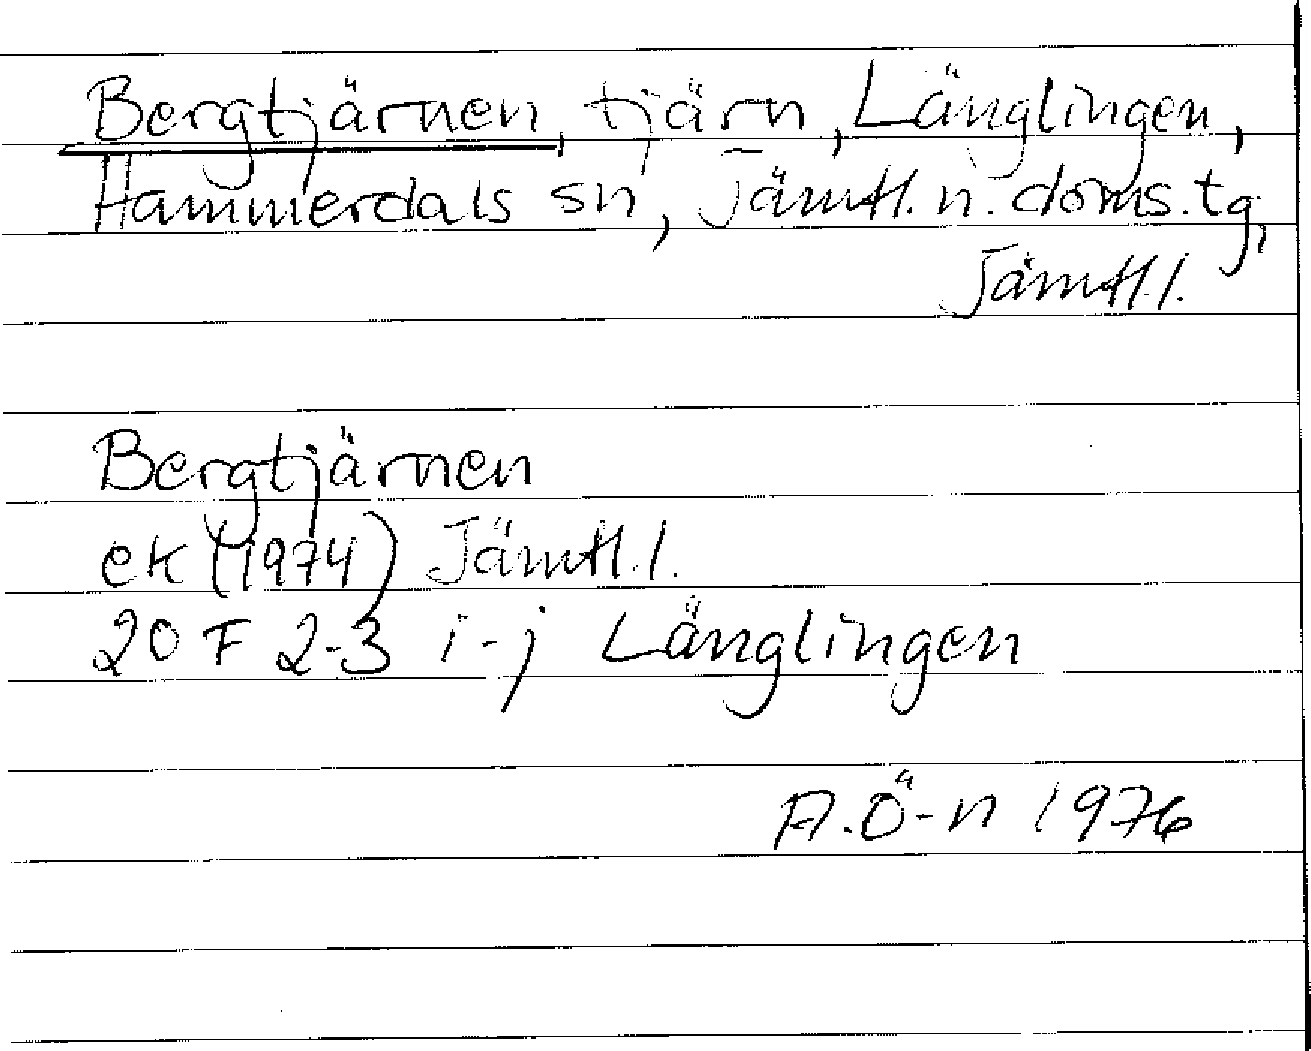 Bergtjärnen, tjärn, Länglingen,
Hammerdals sn, Jämtl. n. doms. tg,
Jämtl. l.
Bergtjärnen
ek (1974) Jämtl. l.
20 F 2-3 i-j Länglingen
A. Ö-n 1976